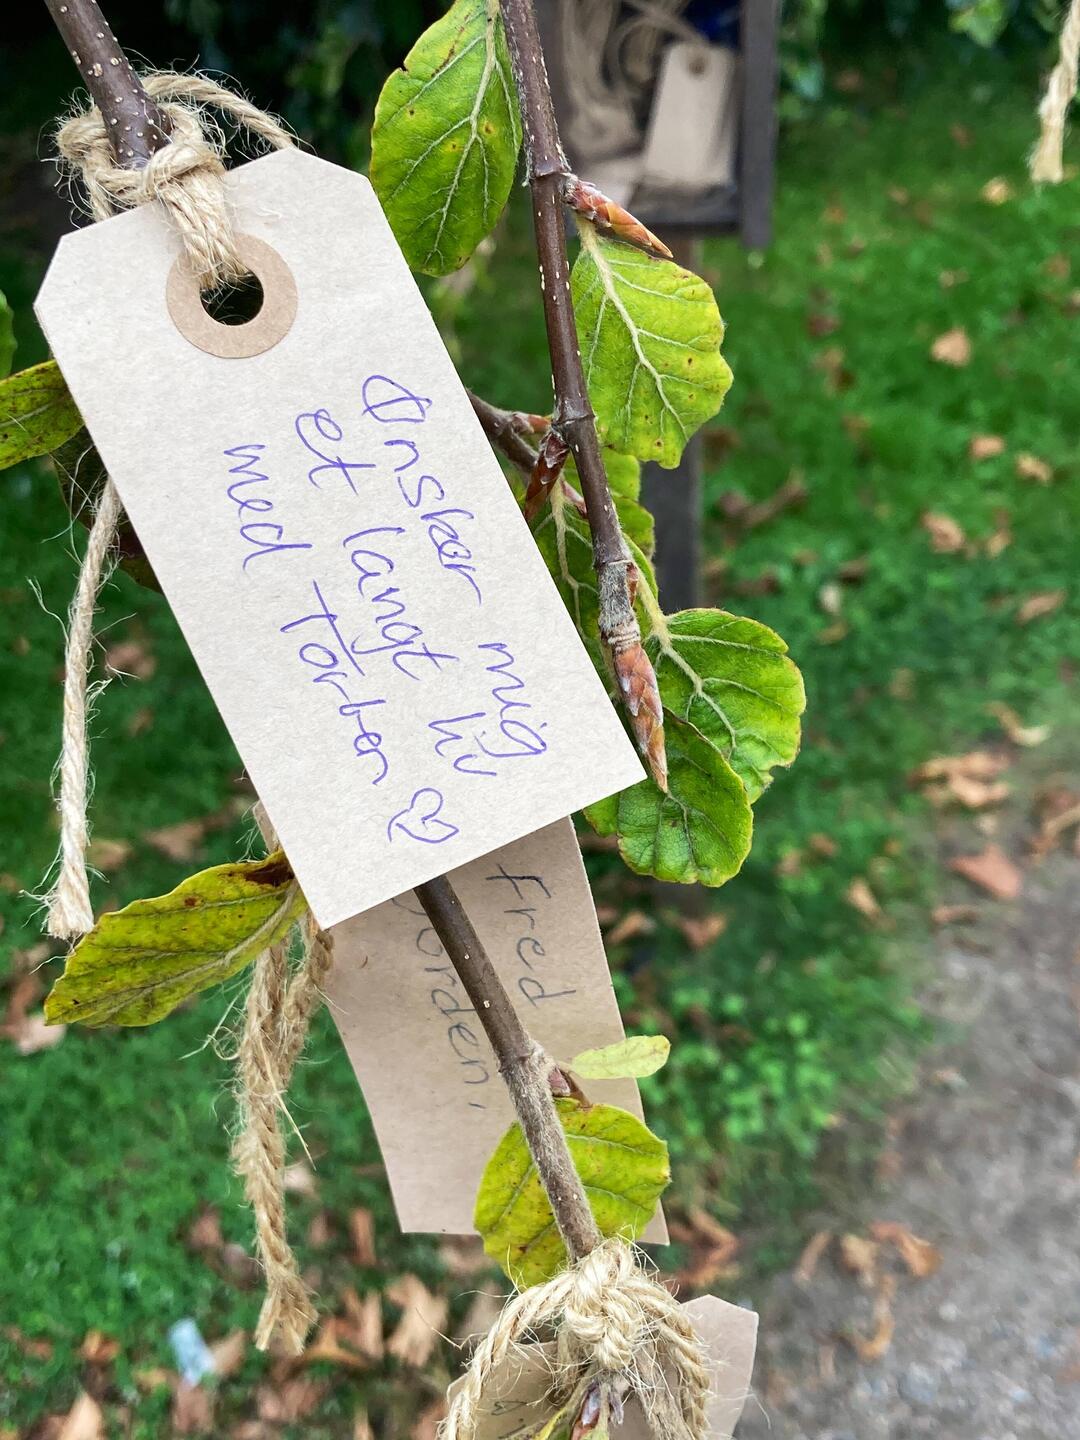 Ønsker mig
et langt liv
med Torben ♡
Fred
jorden,